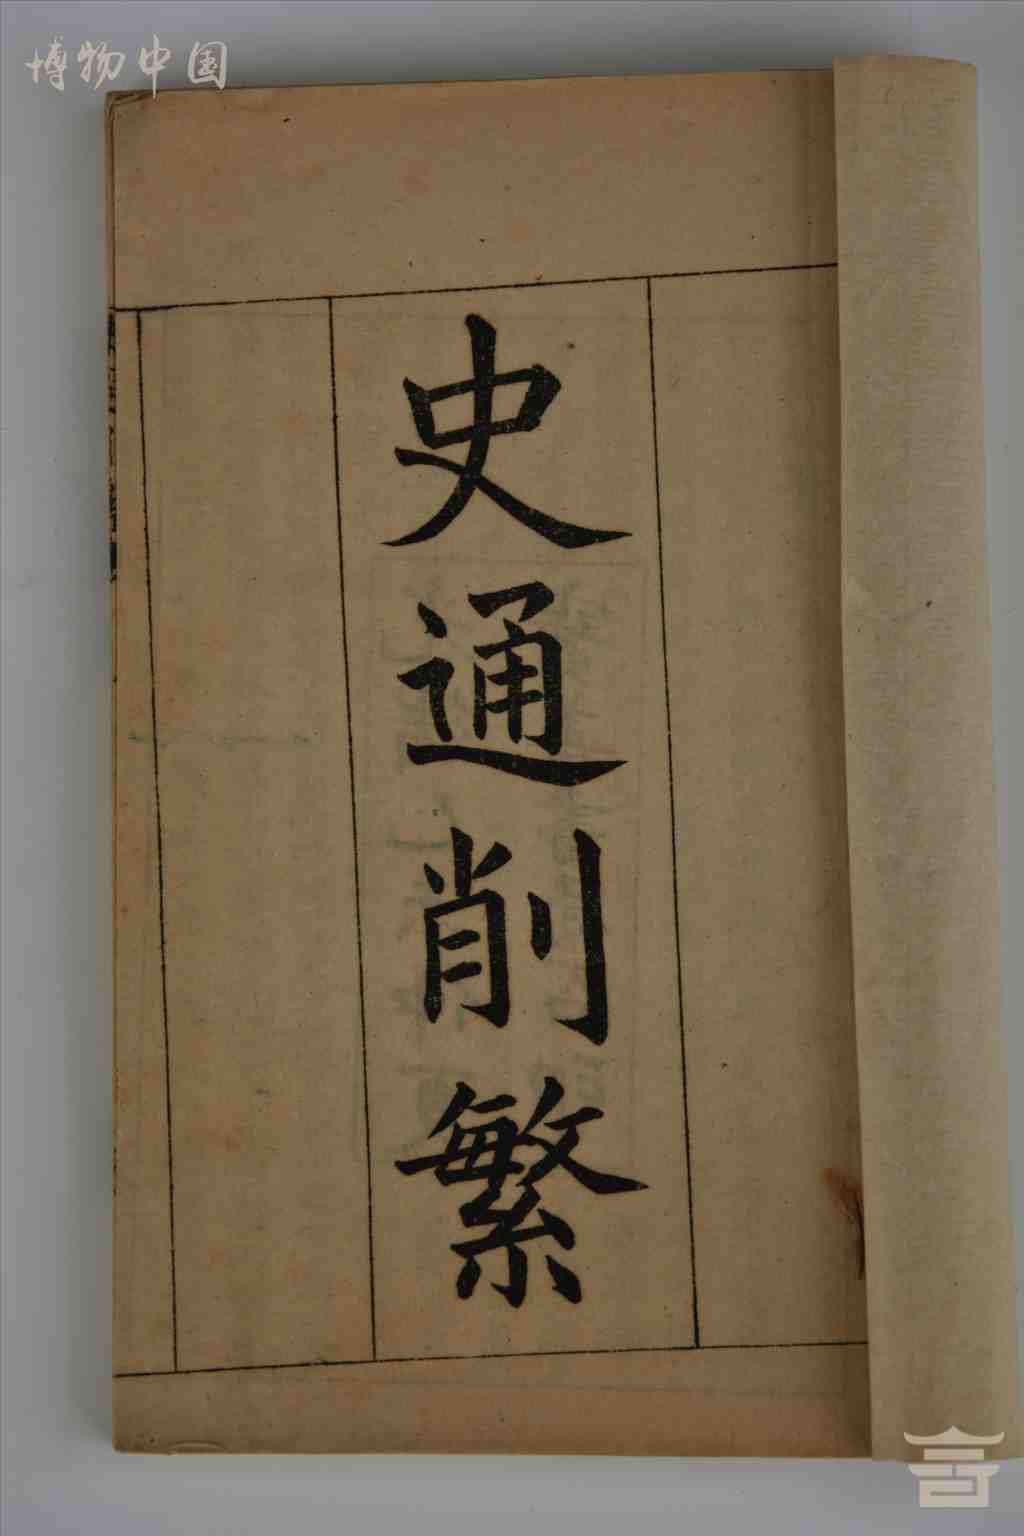 博物中国
史通削繁